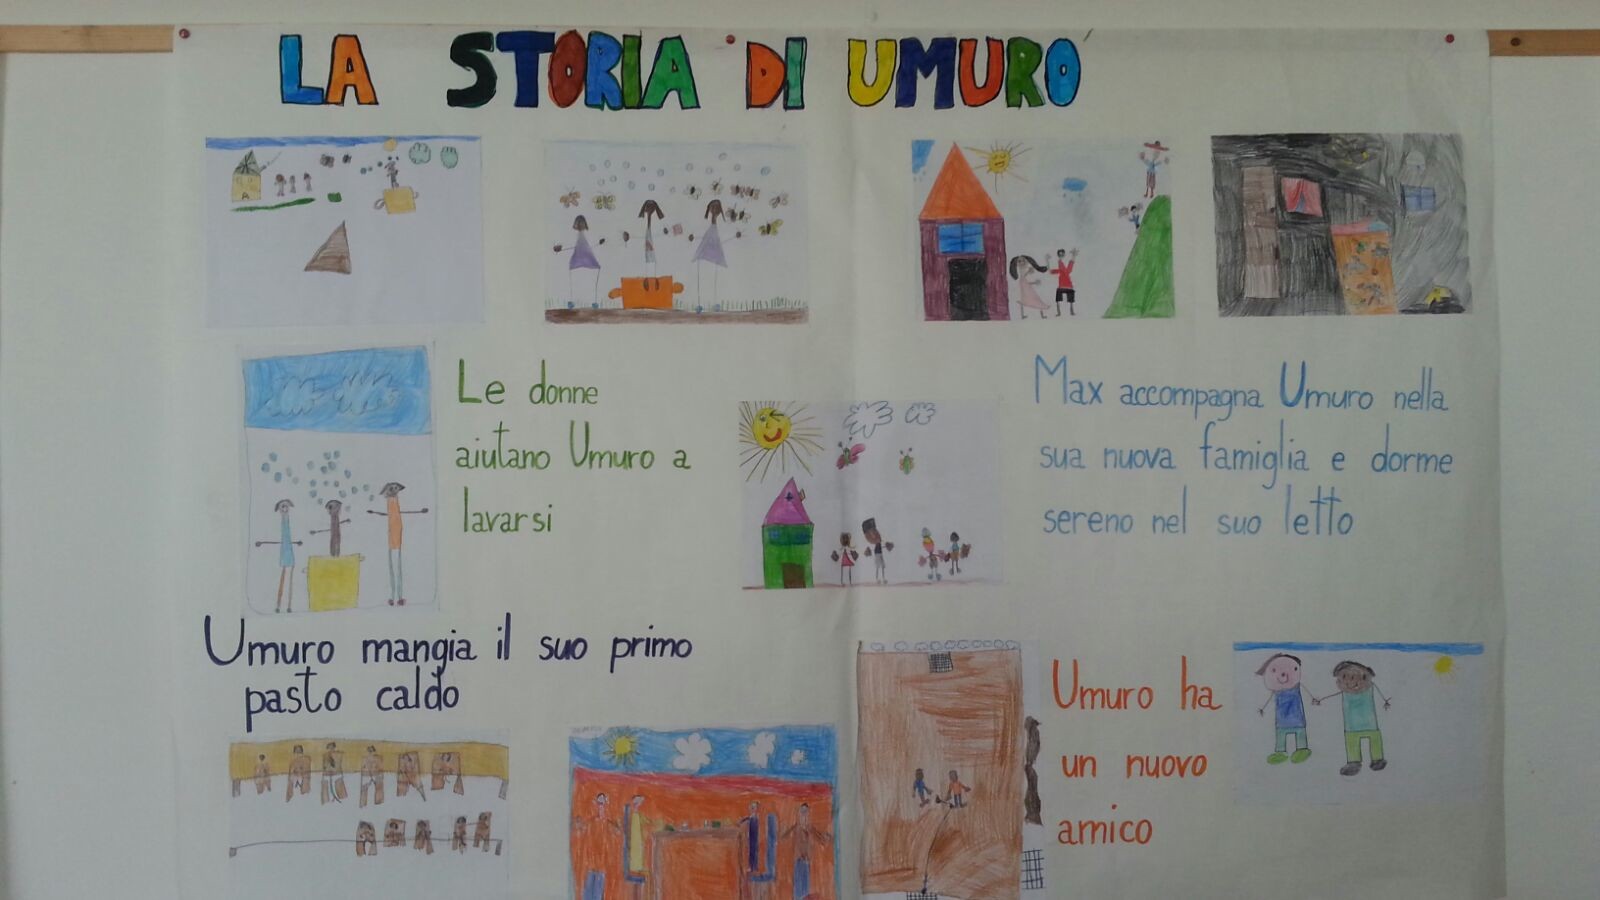 LA STORIA DI UMURO
Le donne
aiutano Umuro a
lavarsi
Max accompagna Umuro nella
sua nuova famiglia e dorme
sereno nel suo letto
Umuro mangia il suo primo
pasto caldo
Umuro ha
un nuovo
amico